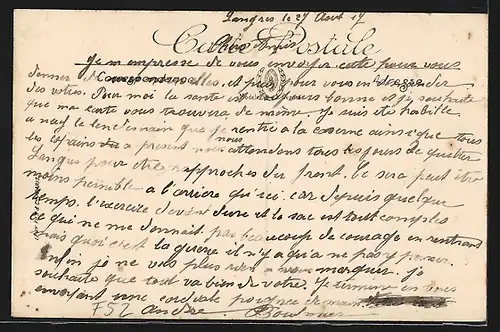 Langres le 27 Août 17
Carte Postale
Chers Amis
Je m'empresse de vous envoyer cette carte pour vous
donner de mes nouvelles, et puis pour vous en demander
des votres. Pour moi la santé est toujours bonne et je souhaite
que ma carte vous trouvera de même. Je suis été habillé
a neuf le lendemain que je rentré a la caserne ainsi que tous
les copains a present nous attendons tous les jours de quitter
Langres pour être rapprocher du front. Ce sera peut être
moins penible a l'arrière qu'ici car depuis quelque
temps l'exercice devient dure et le sac est tout complet
ce qui ne me donnait pas beaucoup de courage en rentrant
mais quoi c'est la guerre il n'y a qu'a ne pas y penser.
Enfin je ne vois plus rien a vous marquer. je
souhaite que tout va bien de votre. Je termine en vous
envoyant une cordiale poignée de main
F52 andré